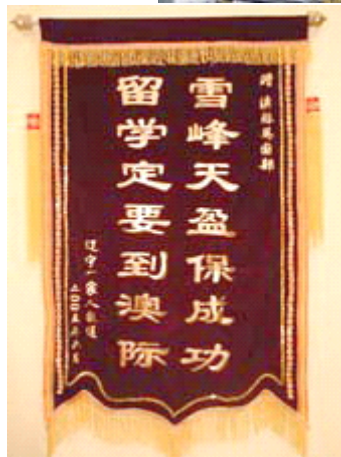 赠 澳际英国部
雪峰天盈保成功
留学定要到澳际
辽宁一家人敬赠
二〇〇五年六月